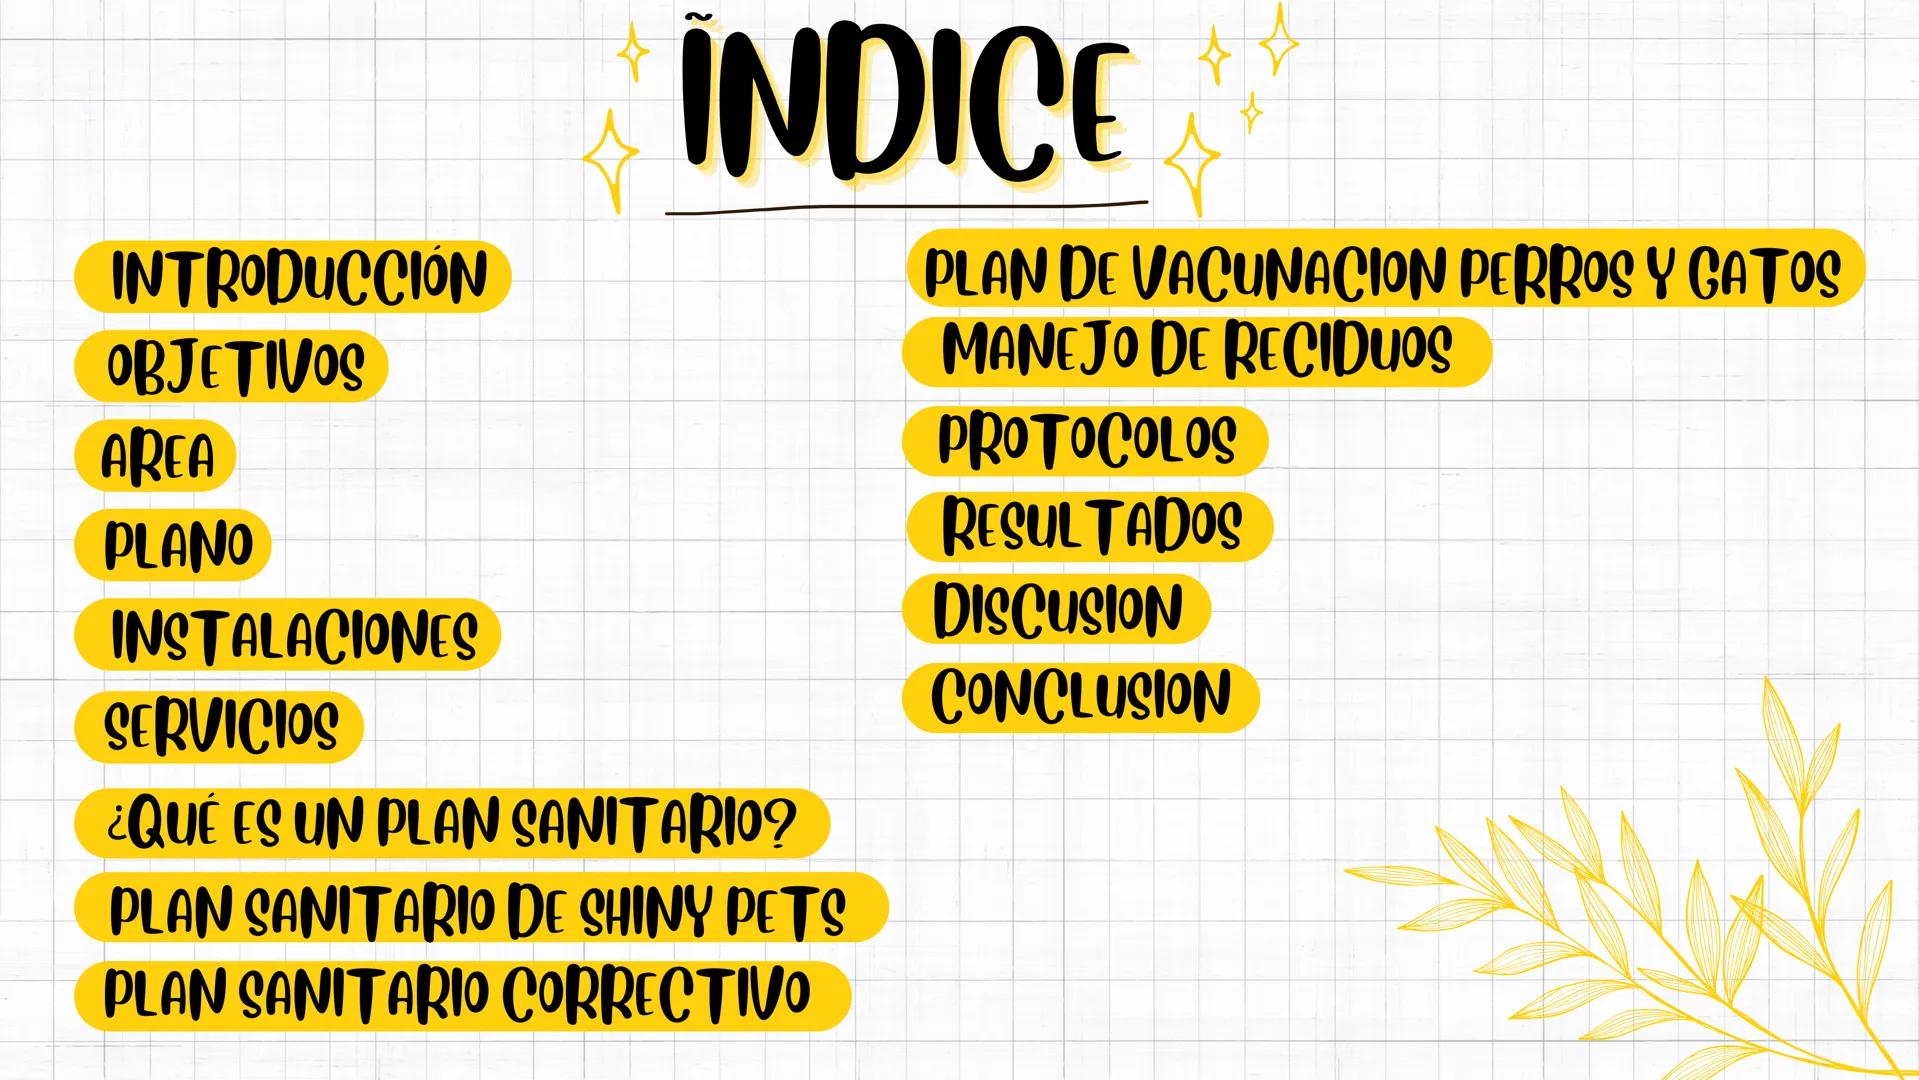 ĨNDICE
INTRODUCCIÓN
OBJETIVOS
AREA
PLANO
INSTALACIONES
SERVICIOS
¿QUÉ ES UN PLAN SANITARIO?
PLAN SANITARIO DE SHINY PETS
PLAN SANITARIO CORRECTIVO
PLAN DE VACUNACION PERROS Y GATOS
MANEJO DE RECIDUOS
PROTOCOLOS
RESULTADOS
DISCUSION
CONCLUSION